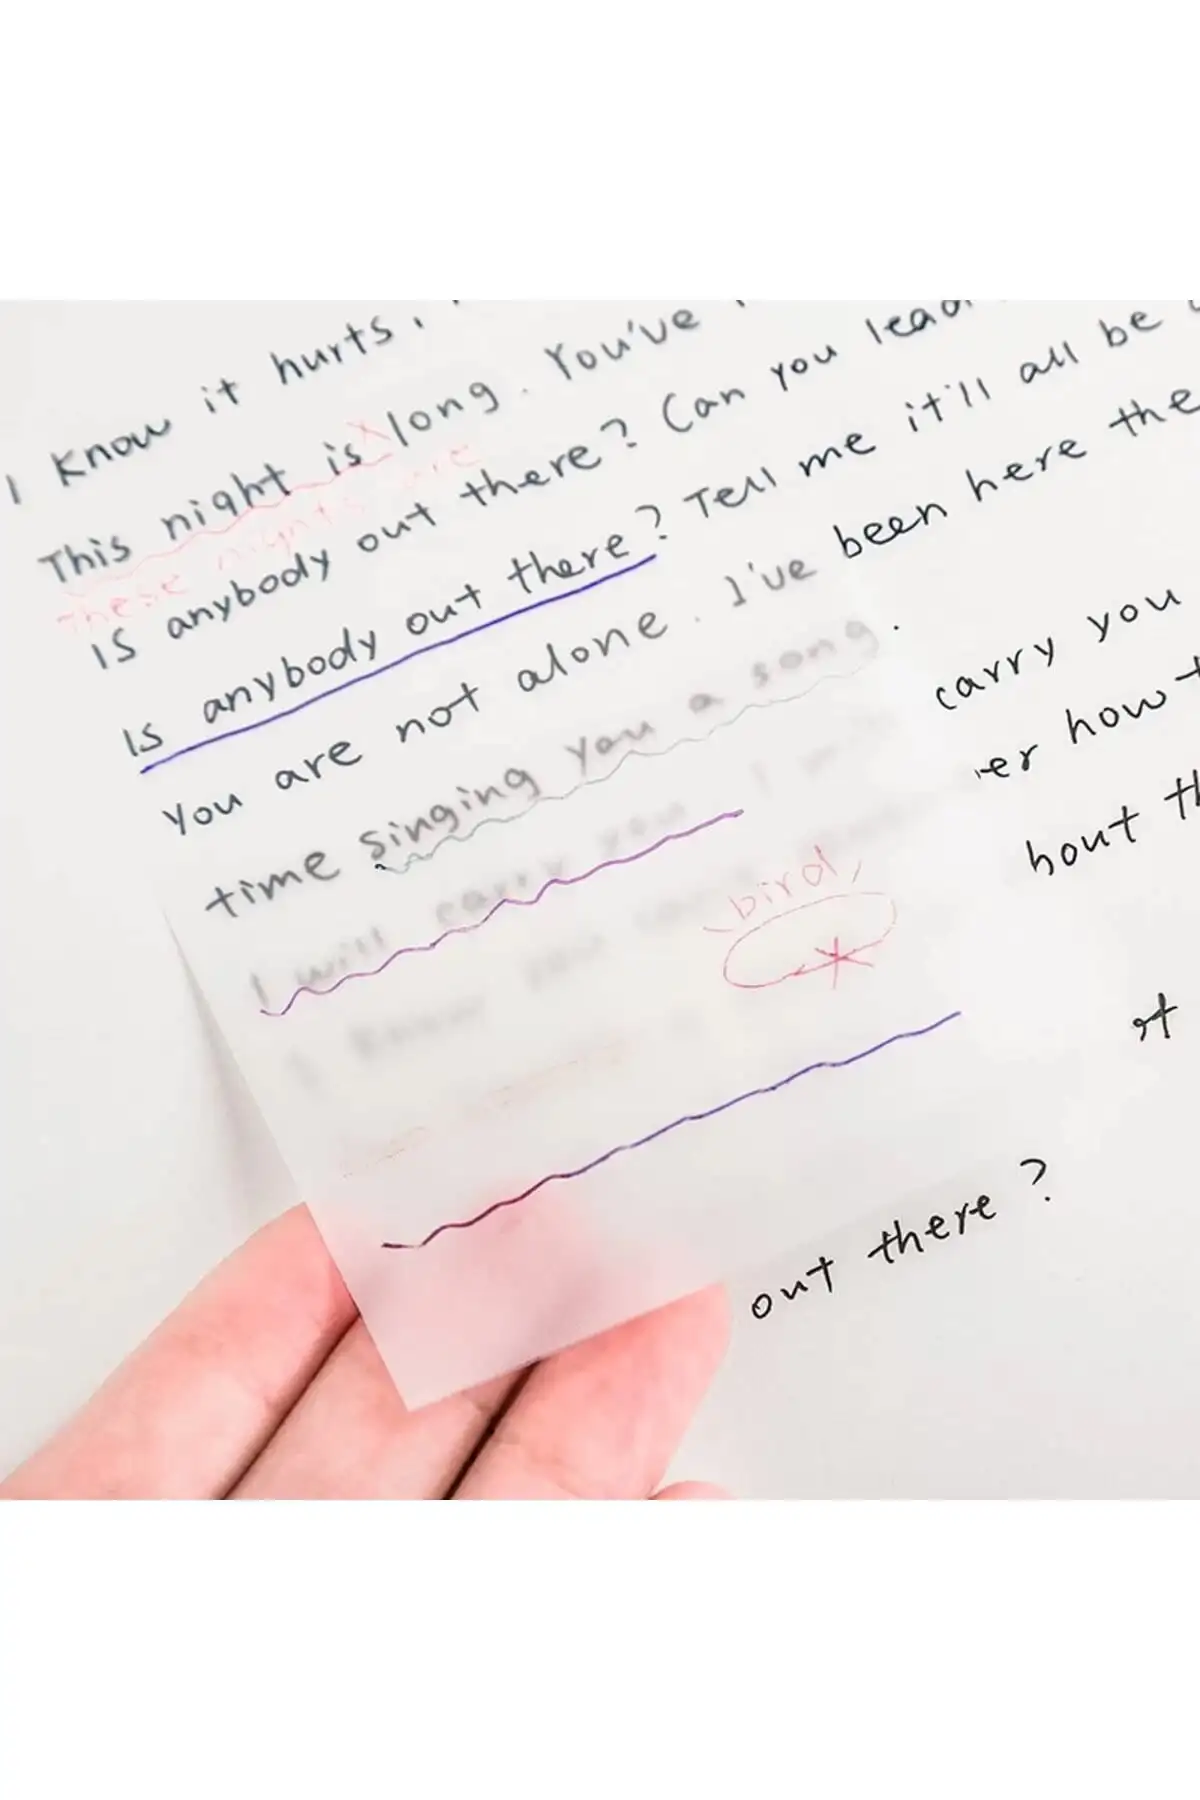 I know it hurts,
This night is long. You've
These nights are
Is anybody out there? Can you lead
Is anybody out there? Tell me it'll all be
You are not alone. I've been here the
time singing you a song.
I will carry you I carry you
I know you er how
bird,
bout
out there?